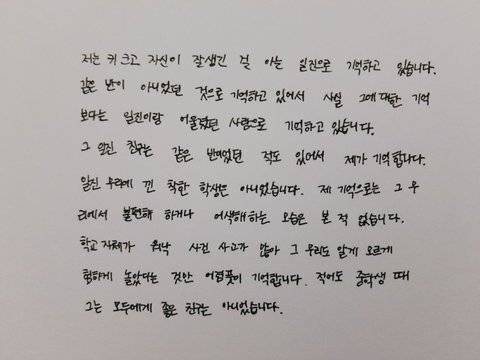 저는 키 크고 자신이 잘생긴 걸 아는 일진으로 기억하고 있습니다.
같은 반이 아니었던 것으로 기억하고 있어서 사실 그에 대한 기억
보다는 일진이랑 어울렸던 사람으로 기억하고 있습니다.
그 일진 친구는 같은 반이었던 적도 있어서 제가 기억합니다.
일진 무리에 낀 착한 학생은 아니었습니다. 제 기억으로는 그 무
리에서 불편해 하거나 어색해하는 모습은 본 적 없습니다.
학교 자체가 워낙 사건 사고가 많아 그 무리도 알게 모르게
험하게 놀았다는 것만 어렴풋이 기억합니다. 적어도 중학생 때
그는 모두에게 좋은 친구는 아니었습니다.